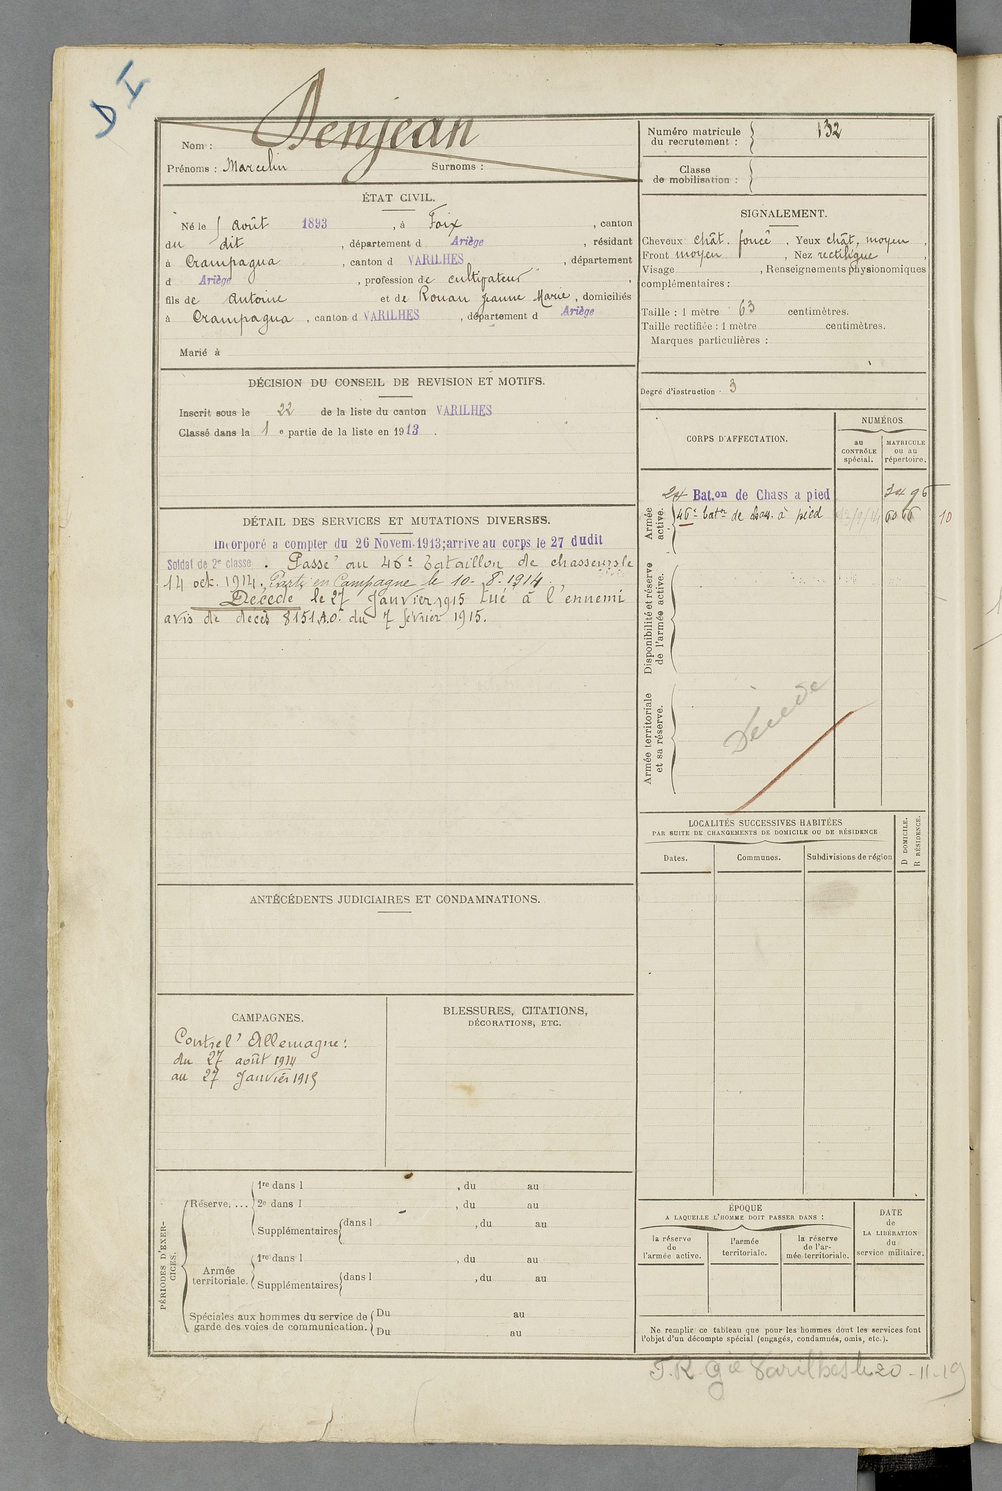 D I
Nom : Denjean
Prénoms : Marcelin Surnoms :
ÉTAT CIVIL.
Né le 1 Août 1893, à Foix, canton
du dit, département d Ariège, résidant
à Crampagna, canton d VARILHES, département
d Ariège, profession de cultivateur,
fils de Antoine et de Rouan Jeanne Marie, domiciliés
à Crampagna, canton d VARILHES, département d Ariège
Marié à
DÉCISION DU CONSEIL DE REVISION ET MOTIFS.
Inscrit sous le 22 de la liste du canton VARILHES
Classé dans la 1 e partie de la liste en 1913.
DÉTAIL DES SERVICES ET MUTATIONS DIVERSES.
Incorporé a compter du 26 Novem. 1913; arrive au corps le 27 dudit
Soldat de 2e classe. Passé au 46e bataillon de chasseurs le
14 oct. 1914. Parti en Campagne le 10-8-1914.
Décédé le 27 Janvier 1915 tué à l'ennemi
avis de décès 8151 A.O. du 7 février 1915.
ANTÉCÉDENTS JUDICIAIRES ET CONDAMNATIONS.
CAMPAGNES.
Contre l'Allemagne :
du 27 août 1914
au 27 Janvier 1915
BLESSURES, CITATIONS,
DÉCORATIONS, ETC.
PÉRIODES D'EXER-
CICES.
Réserve, ...
1re dans l , du au
2e dans l , du au
Supplémentaires dans l , du au
Armée
territoriale.
1re dans l , du au
Supplémentaires dans l , du au
Spéciales aux hommes du service de
garde des voies de communication.
Du au
Du au
Numéro matricule
du recrutement : 132
Classe
de mobilisation :
SIGNALEMENT.
Cheveux chât. foncé. Yeux chât. moyen,
Front moyen, Nez rectiligne,
Visage , Renseignements physionomiques
complémentaires :
Taille : 1 mètre 63 centimètres.
Taille rectifiée : 1 mètre centimètres.
Marques particulières :
Degré d'instruction. 3
CORPS D'AFFECTATION.
NUMÉROS
au
CONTRÔLE
spécial.
MATRICULE
ou au
répertoire.
Armée
active.
24 Bat.on de Chass a pied
46e batn de chas. à pied
10
Disponibilité et réserve
de l'armée active.
Armée territoriale
et sa réserve.
Décédé
LOCALITÉS SUCCESSIVES HABITÉES
PAR SUITE DE CHANGEMENTS DE DOMICILE OU DE RÉSIDENCE
Dates.
Communes.
Subdivisions de région
D DOMICILE.
R RÉSIDENCE.
ÉPOQUE
A LAQUELLE L'HOMME DOIT PASSER DANS :
la réserve
de
l'armée active.
l'armée
territoriale.
la réserve
de l'ar-
mée territoriale.
DATE
de
LA LIBÉRATION
du
service militaire.
Ne remplir ce tableau que pour les hommes dont les services font
l'objet d'un décompte spécial (engagés, condamnés, omis, etc.).
T.R. Gie Varilhes le 20-11-19